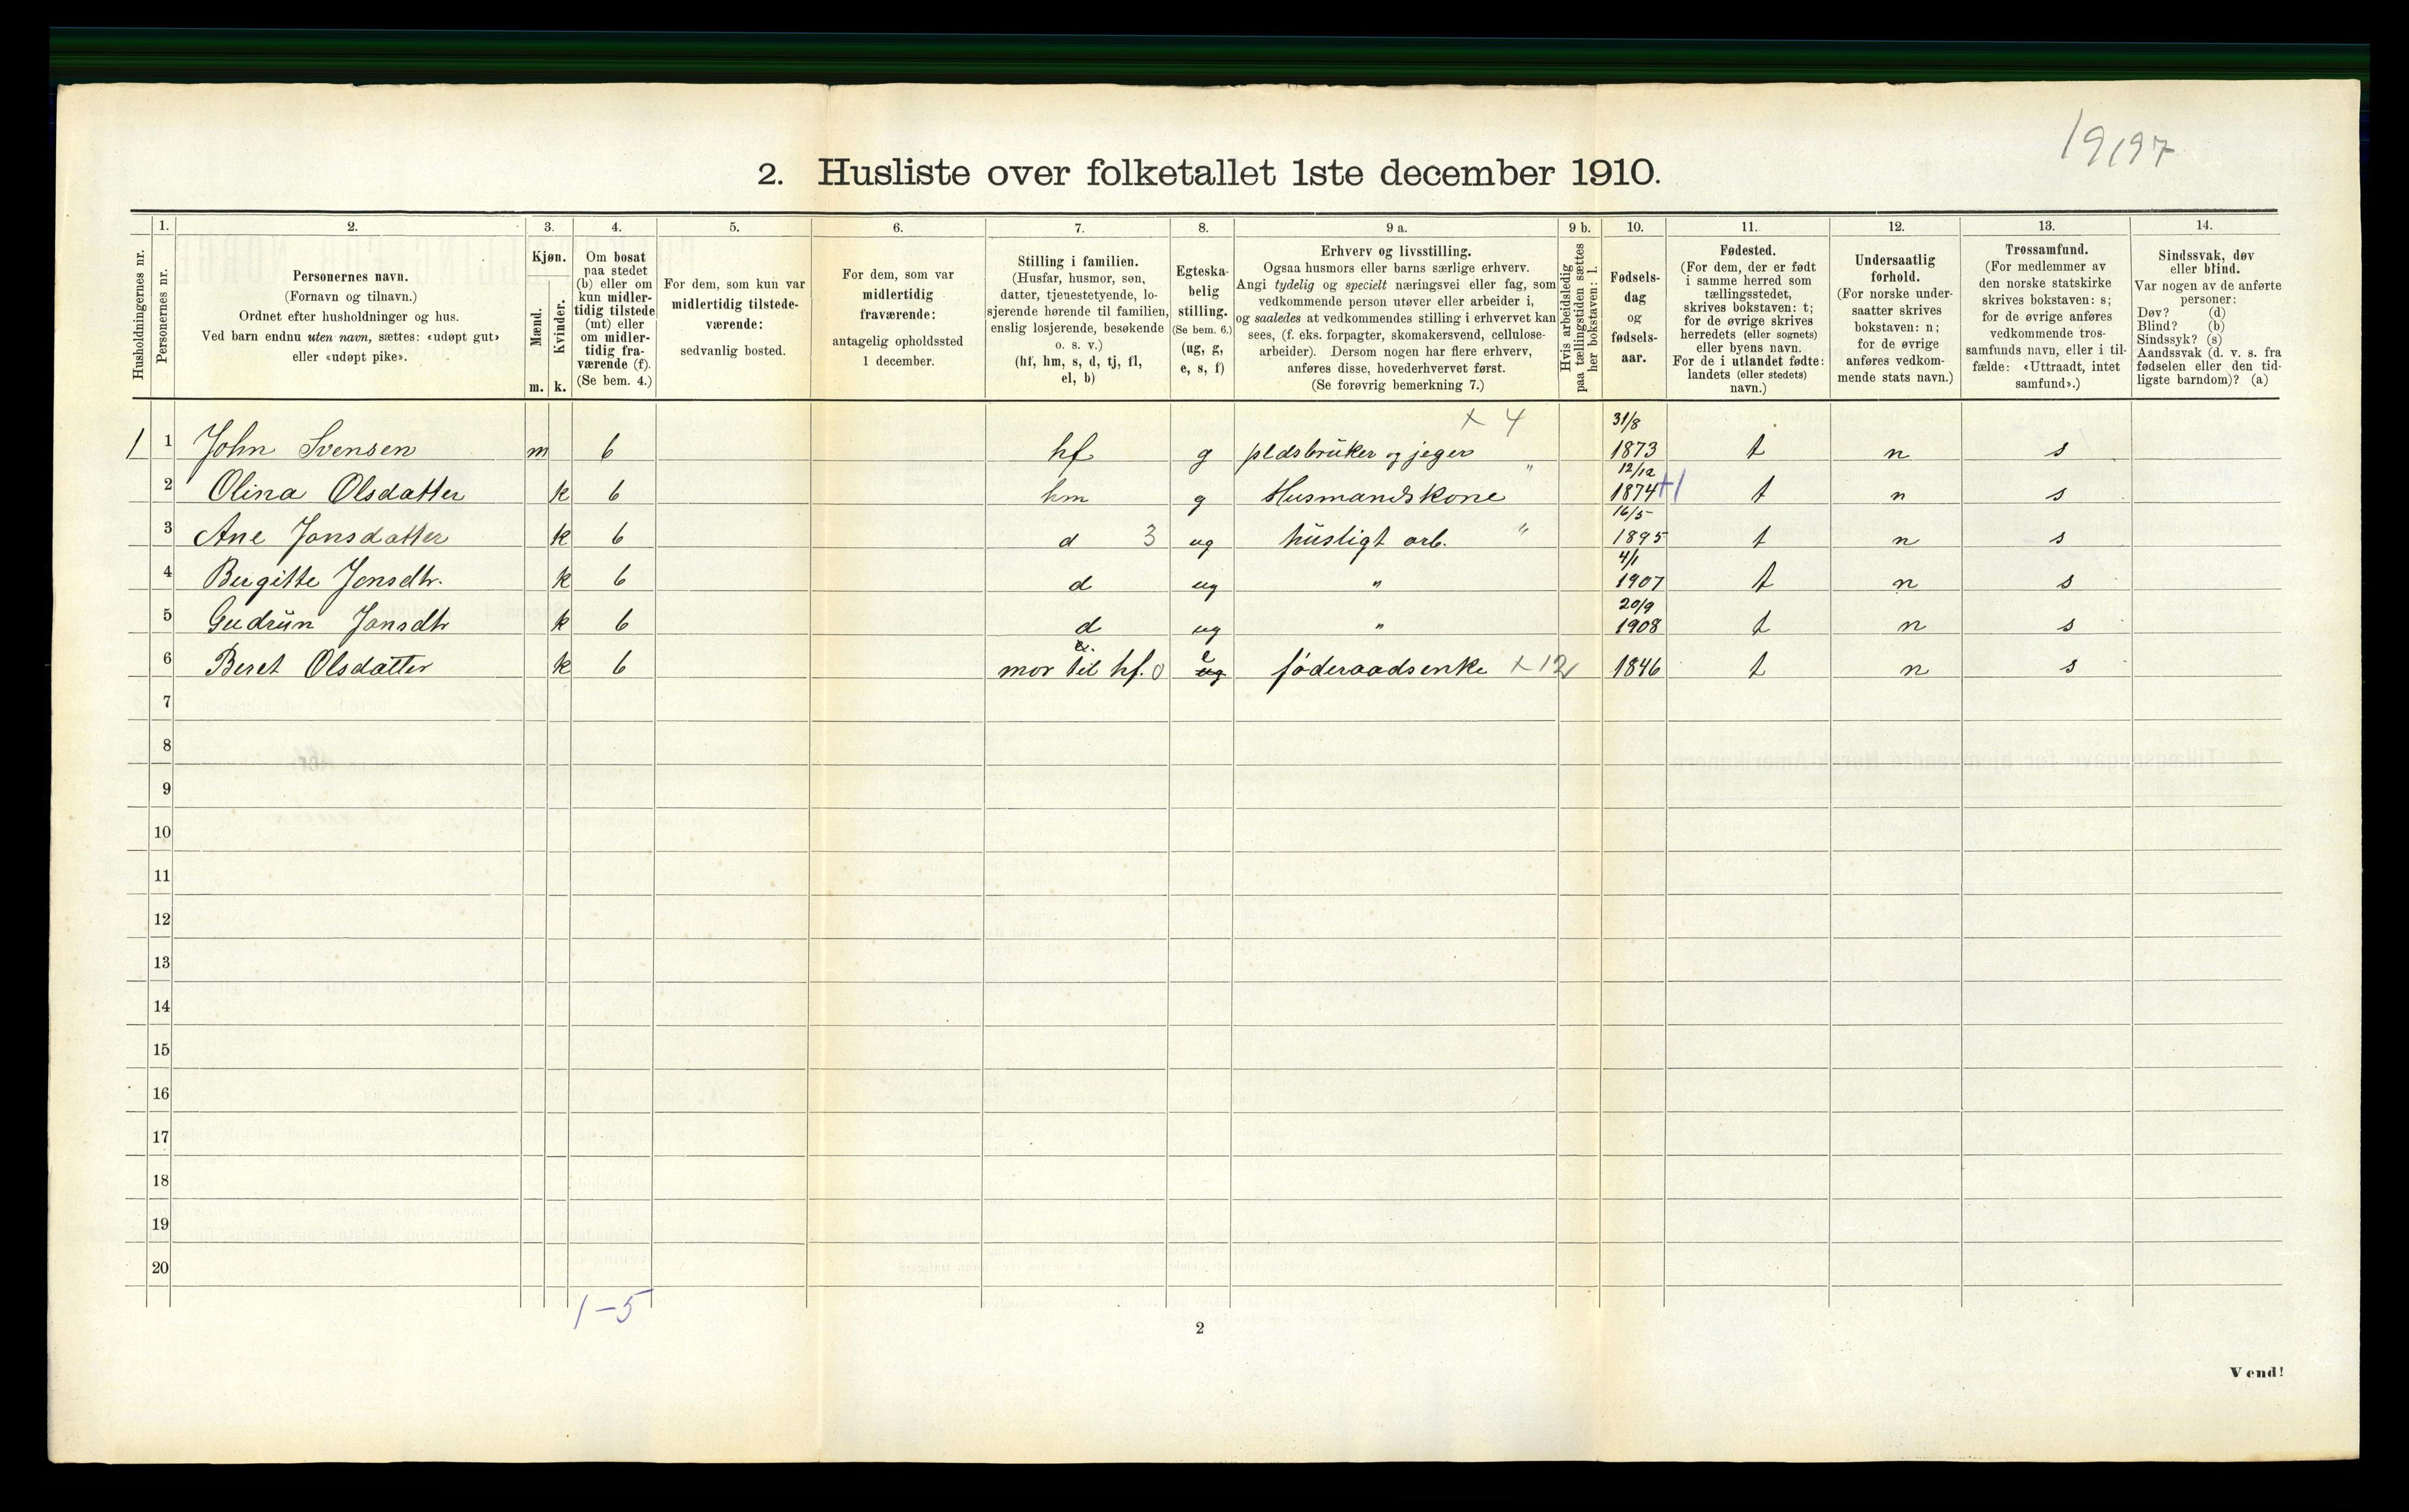 19197
2. Husliste over folketallet 1ste december 1910.
1. 2. 3. 4. 5. 6. 7. 8. 9 a. 9 b. 10. 11. 12. 13. 14.
Husholdningernes nr.
Personernes nr.
Personernes navn.
(Fornavn og tilnavn.)
Ordnet efter husholdninger og hus.
Ved barn endnu uten navn, sættes: «udøpt gut»
eller «udøpt pike».
Kjøn.
Mænd.
Kvinder.
m. k.
Om bosat
paa stedet
(b) eller om
kun midler-
tidig tilstede
(mt) eller
om midler-
tidig fra-
værende (f).
(Se bem. 4.)
For dem, som kun var
midlertidig tilstede-
værende:
sedvanlig bosted.
For dem, som var
midlertidig
fraværende:
antagelig opholdssted
1 december.
Stilling i familien.
(Husfar, husmor, søn,
datter, tjenestetyende, lo-
sjerende hørende til familien,
enslig losjerende, besøkende
o. s. v.)
(hf, hm, s, d, tj, fl,
el, b)
Egteska-
belig
stilling.
(Se bem. 6.)
(ug, g,
e, s, f)
Erhverv og livsstilling.
Ogsaa husmors eller barns særlige erhverv.
Angi tydelig og specielt næringsvei eller fag, som
vedkommende person utøver eller arbeider i,
og saaledes at vedkommendes stilling i erhvervet kan
sees, (f. eks. forpagter, skomakersvend, cellulose-
arbeider). Dersom nogen har flere erhverv,
anføres disse, hovederhvervet først.
(Se forøvrig bemerkning 7.)
Hvis arbeidsledig
paa tællingstiden sættes
her bokstaven: l.
Fødsels-
dag
og
fødsels-
aar.
Fødested.
(For dem, der er født
i samme herred som
tællingsstedet,
skrives bokstaven: t;
for de øvrige skrives
herredets (eller sognets)
eller byens navn.
For de i utlandet fødte:
landets (eller stedets)
navn.)
Undersaatlig
forhold.
(For norske under-
saatter skrives
bokstaven: n;
for de øvrige
anføres vedkom-
mende stats navn.)
Trossamfund.
(For medlemmer av
den norske statskirke
skrives bokstaven: s;
for de øvrige anføres
vedkommende tros-
samfunds navn, eller i til-
fælde: «Uttraadt, intet
samfund».)
Sindssvak, døv
eller blind.
Var nogen av de anførte
personer:
Døv? (d)
Blind? (b)
Sindssyk? (s)
Aandssvak (d. v. s. fra
fødselen eller den tid-
ligste barndom)? (a)
x 4 31/8
1 1 John Svensen m 6 hf g pldsbruker og jeger 1873 t n s
12/12
2 Olina Olsdatter k 6 hm g Husmandskone " 1874 +1 t n s
16/5
3 Ane Jonsdatter k 6 d 3 ug husligt arb. " 1895 t n s
4/1
4 Birgitte Jonsdtr. k 6 d ug " 1907 t n s
20/9
5 Gudrun Jonsdtr k 6 d ug " 1908 t n s
6 Beret Olsdatter k 6 mor til hf. 0 e ug føderaadsenke x 12 1846 t n s
7
8
9
10
11
12
13
14
15
16
17
18
19
20
1-5
2
Vend!